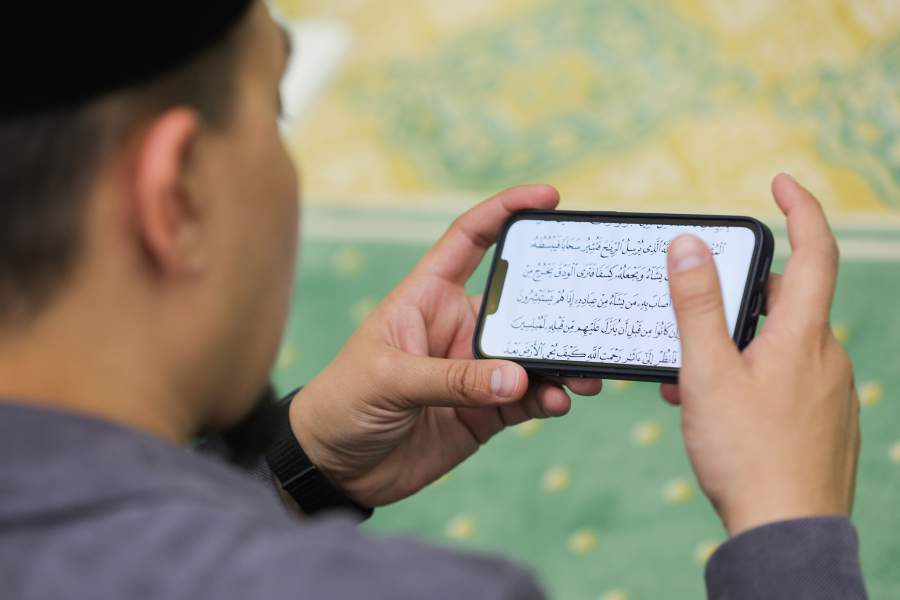 ٱلَّذِى يُرْسِلُ ٱلرِّيَٰحَ فَتُثِيرُ سَحَابًا فَيَبْسُطُهُۥ
يَشَآءُ وَيَجْعَلُهُۥ كِسَفًا فَتَرَى ٱلْوَدْقَ يَخْرُجُ مِنْ
صَابَ بِهِۦ مَن يَشَآءُ مِنْ عِبَادِهِۦٓ إِذَا هُمْ يَسْتَبْشِرُونَ
إِن كَانُوا۟ مِن قَبْلِ أَن يُنَزَّلَ عَلَيْهِم مِّن قَبْلِهِۦ لَمُبْلِسِينَ
فَٱنظُرْ إِلَىٰٓ ءَاثَٰرِ رَحْمَتِ ٱللَّهِ كَيْفَ يُحْىِ ٱلْأَرْضَ بَعْدَ